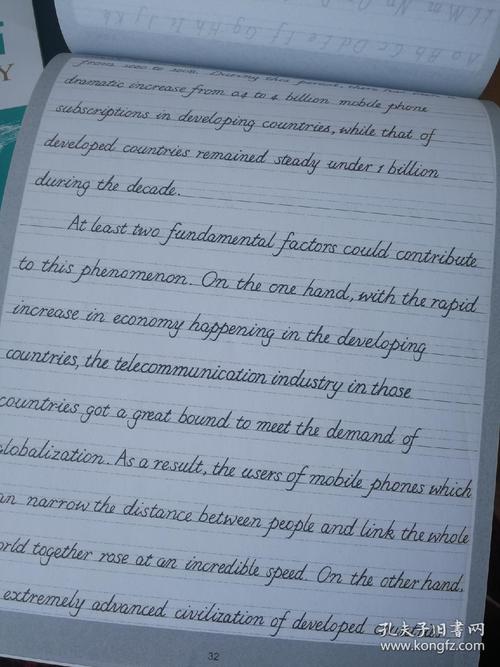 LL Mm Nn
Aa Bb Cc Dd Ee Ff Gg Hh Ii Jj Kk
Y
from 2000 to 2008. During this period, there had been a
dramatic increase from 0.4 to 4 billion mobile phone
subscriptions in developing countries, while that of
developed countries remained steady under 1 billion
during the decade.
At least two fundamental factors could contribute
to this phenomenon. On the one hand, with the rapid
increase in economy happening in the developing
countries, the telecommunication industry in those
countries got a great bound to meet the demand of
globalization. As a result, the users of mobile phones which
an narrow the distance between people and link the whole
orld together rose at an incredible speed. On the other hand,
extremely advanced civilization of developed countries
32
孔夫子旧书网
www.kongfz.com